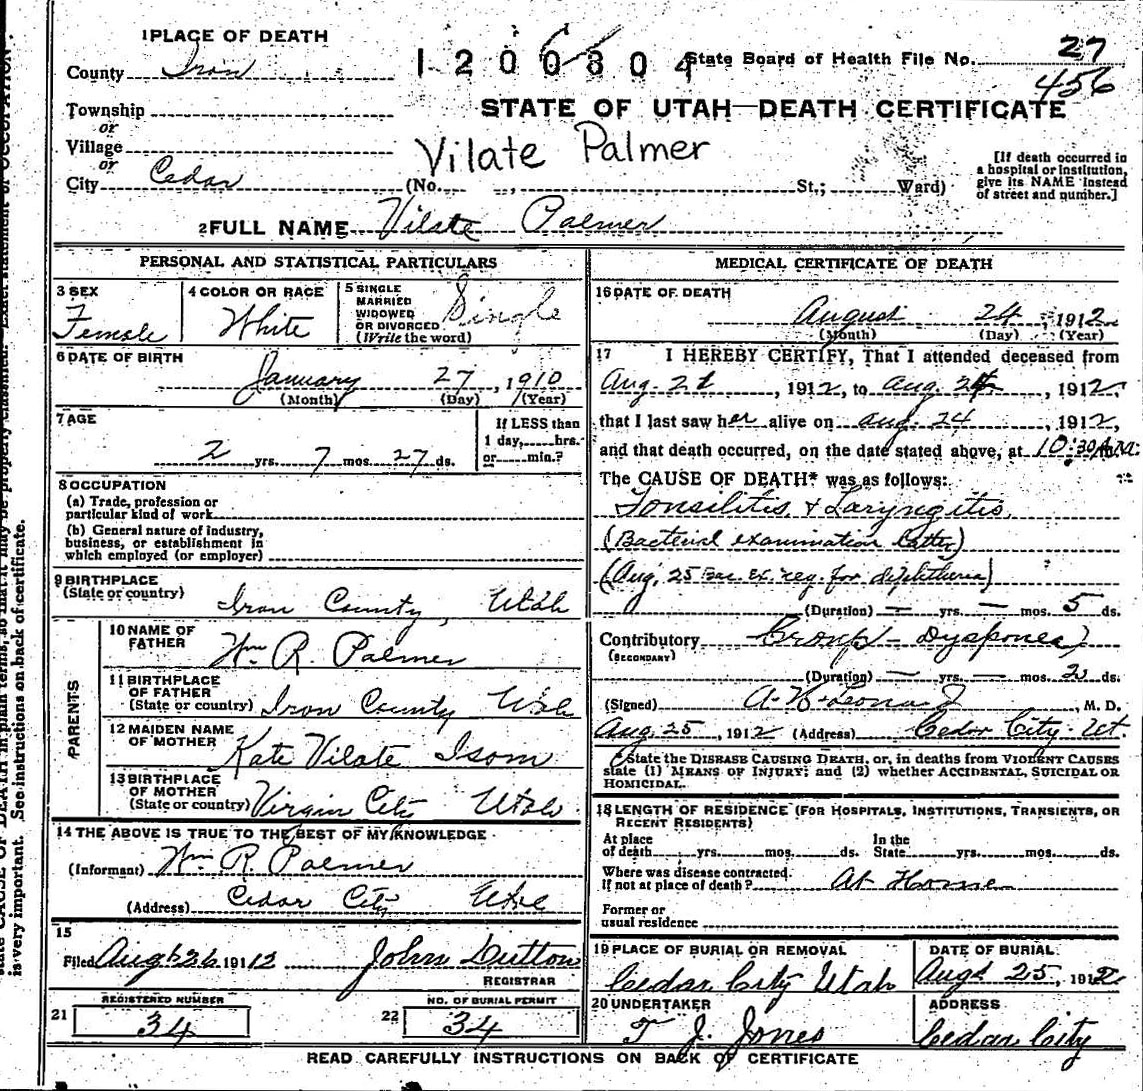 1 PLACE OF DEATH
County Iron
1200304
State Board of Health File No. 27
456
Township
or
Village
or
City Cedar
STATE OF UTAH—DEATH CERTIFICATE
Vilate Palmer
(No. , St.; Ward)
[If death occurred in
a hospital or institution,
give its NAME instead
of street and number.]
2 FULL NAME Vilate Palmer
PERSONAL AND STATISTICAL PARTICULARS
3 SEX
Female
4 COLOR OR RACE
White
5 SINGLE
MARRIED
WIDOWED
OR DIVORCED
(Write the word)
Single
6 DATE OF BIRTH
January 27, 1910
(Month) (Day) (Year)
7 AGE
2 yrs. 7 mos. 27 ds.
If LESS than
1 day, hrs.
or min.?
8 OCCUPATION
(a) Trade, profession or
particular kind of work
(b) General nature of industry,
business, or establishment in
which employed (or employer)
9 BIRTHPLACE
(State or country)
Iron County, Utah
PARENTS
10 NAME OF
FATHER
Wm R. Palmer
11 BIRTHPLACE
OF FATHER
(State or country) Iron County Utah
12 MAIDEN NAME
OF MOTHER
Kate Vilate Isom
13 BIRTHPLACE
OF MOTHER
(State or country) Virgin City Utah
14 THE ABOVE IS TRUE TO THE BEST OF MY KNOWLEDGE
(Informant) Wm R. Palmer
(Address) Cedar City Utah
15
Filed Aug 26 1912 John Dutton
REGISTRAR
REGISTERED NUMBER
21 34
NO. OF BURIAL PERMIT
22 34
MEDICAL CERTIFICATE OF DEATH
16 DATE OF DEATH
August 24, 1912
(Month) (Day) (Year)
17 I HEREBY CERTIFY, That I attended deceased from
Aug. 21, 1912, to Aug. 24, 1912,
that I last saw her alive on Aug. 24, 1912,
and that death occurred, on the date stated above, at 10:30 A.m.
The CAUSE OF DEATH* was as follows:
Tonsilitis & Laryngitis
(Bacterial examination Later)
(Aug. 25 Bac. Ex. neg. for diphtheria)
(Duration) — yrs. — mos. 5 ds.
Contributory Croup – Dysponea)
(SECONDARY)
(Duration) — yrs. — mos. 2 ds.
(Signed) , M. D.
Aug. 25, 1912 (Address) Cedar City Ut.
State the DISEASE CAUSING DEATH, or, in deaths from VIOLENT CAUSES
state (1) MEANS OF INJURY; and (2) whether ACCIDENTAL, SUICIDAL OR
HOMICIDAL.
18 LENGTH OF RESIDENCE (FOR HOSPITALS, INSTITUTIONS, TRANSIENTS, OR
RECENT RESIDENTS)
At place
of death yrs. mos. ds.
In the
State yrs. mos. ds.
Where was disease contracted.
If not at place of death? At Home
Former or
usual residence
19 PLACE OF BURIAL OR REMOVAL
Cedar City Utah
DATE OF BURIAL
Augst 25, 1912
20 UNDERTAKER
T J. Jones
ADDRESS
Cedar City
READ CAREFULLY INSTRUCTIONS ON BACK OF CERTIFICATE
is very important. See instructions on back of certificate.